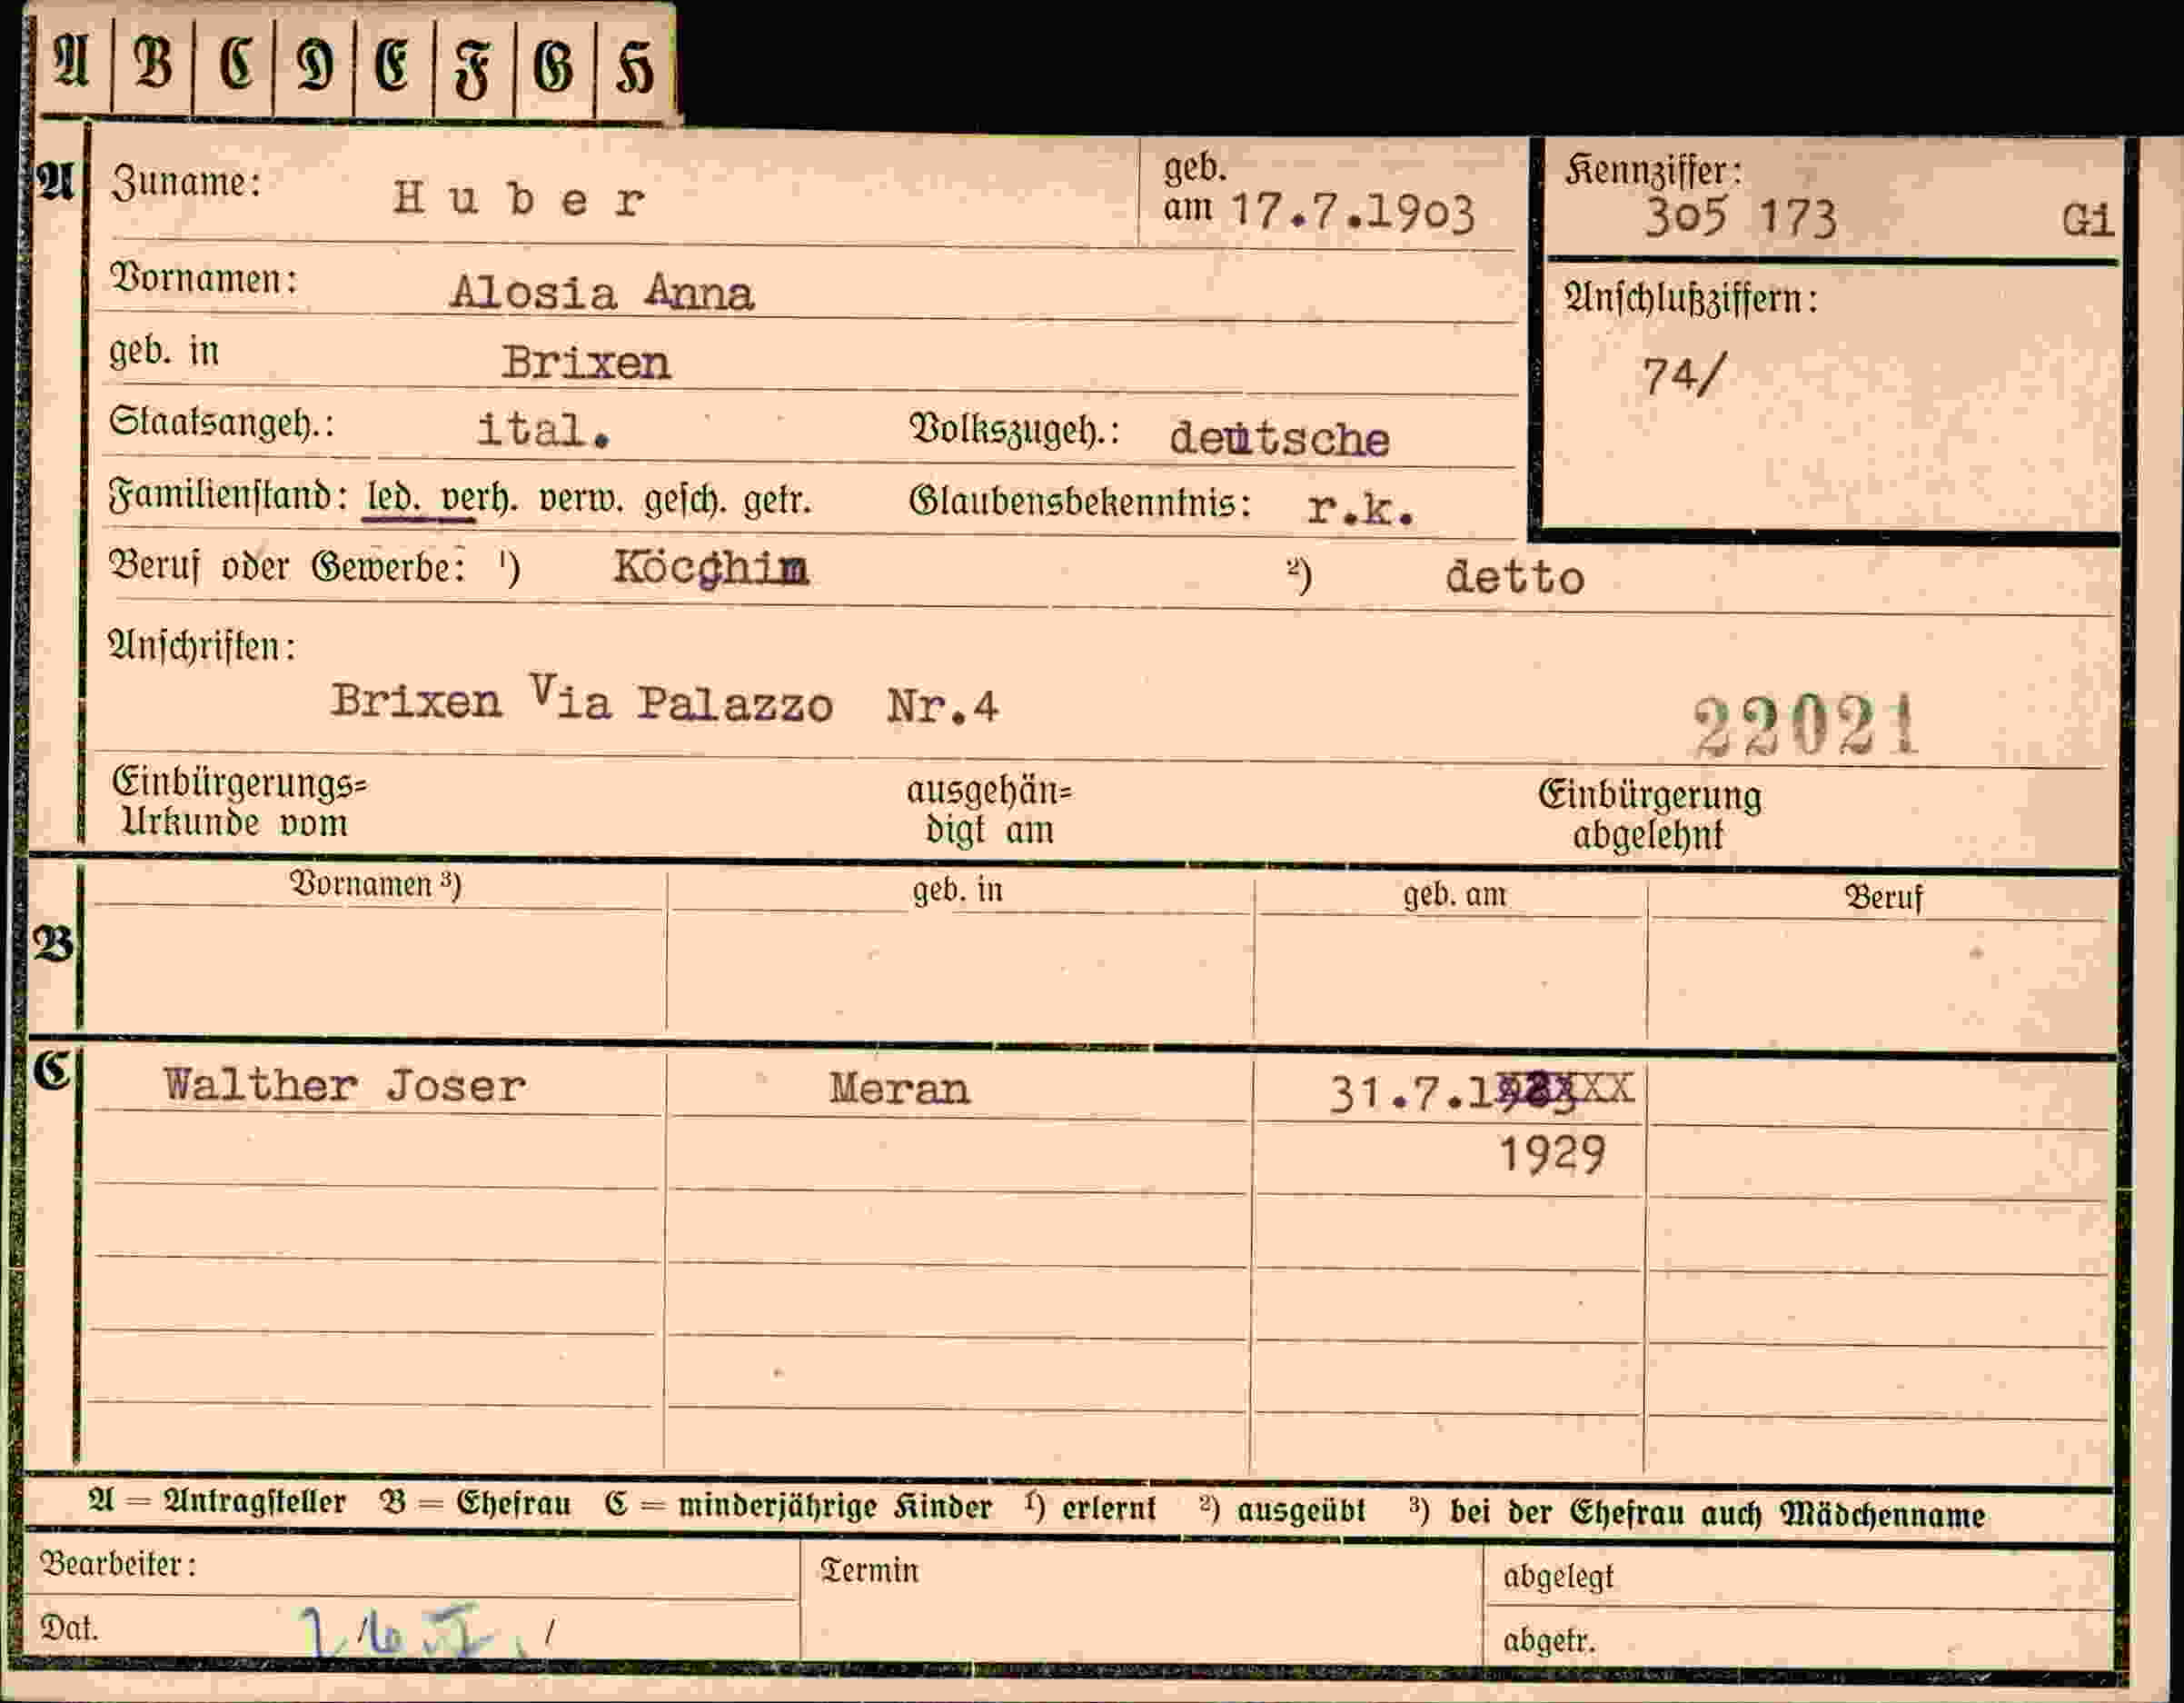 A B C D E F G H
A Zuname: Huber geb. am 17.7.1903 Kennziffer: 305 173 Gi
Vornamen: Alosia Anna Anschlußziffern:
geb. in Brixen 74/
Staatsangeh.: ital. Volkszugeh.: deutsche
Familienstand: led. verh. verw. gesch. getr. Glaubensbekenntnis: r.k.
Beruf oder Gewerbe: 1) 2) detto
Anschriften:
Brixen Via Palazzo Nr.4 22021
Einbürgerungs= ausgehän= Einbürgerung
Urkunde vom digt am abgelehnt
Vornamen 3) geb. in geb. am Beruf
B
C Walther Joser Meran 31.7.1
1929
A = Antragsteller B = Ehefrau C = minderjährige Kinder 1) erlernt 2) ausgeübt 3) bei der Ehefrau auch Mädchenname
Bearbeiter: Termin abgelegt
Dat. abgetr.